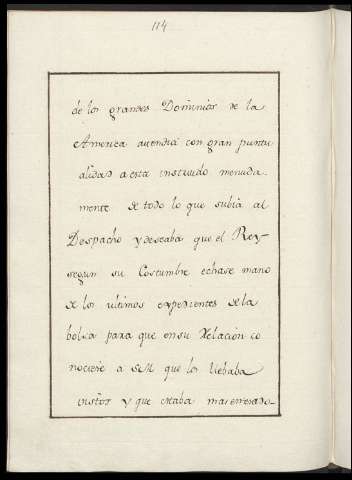 114
de los grandes Dominios de la
America atendia con gran puntu
alidad a esta instruido menuda
mente de todo lo que subia al
Despacho y deseaba que el Rey
segun su Costumbre echase mano
de los ultimos expedientes de la
bolsa para que en su Relacion co
nociese a S.M. que los llebaba
vistos y que estaba